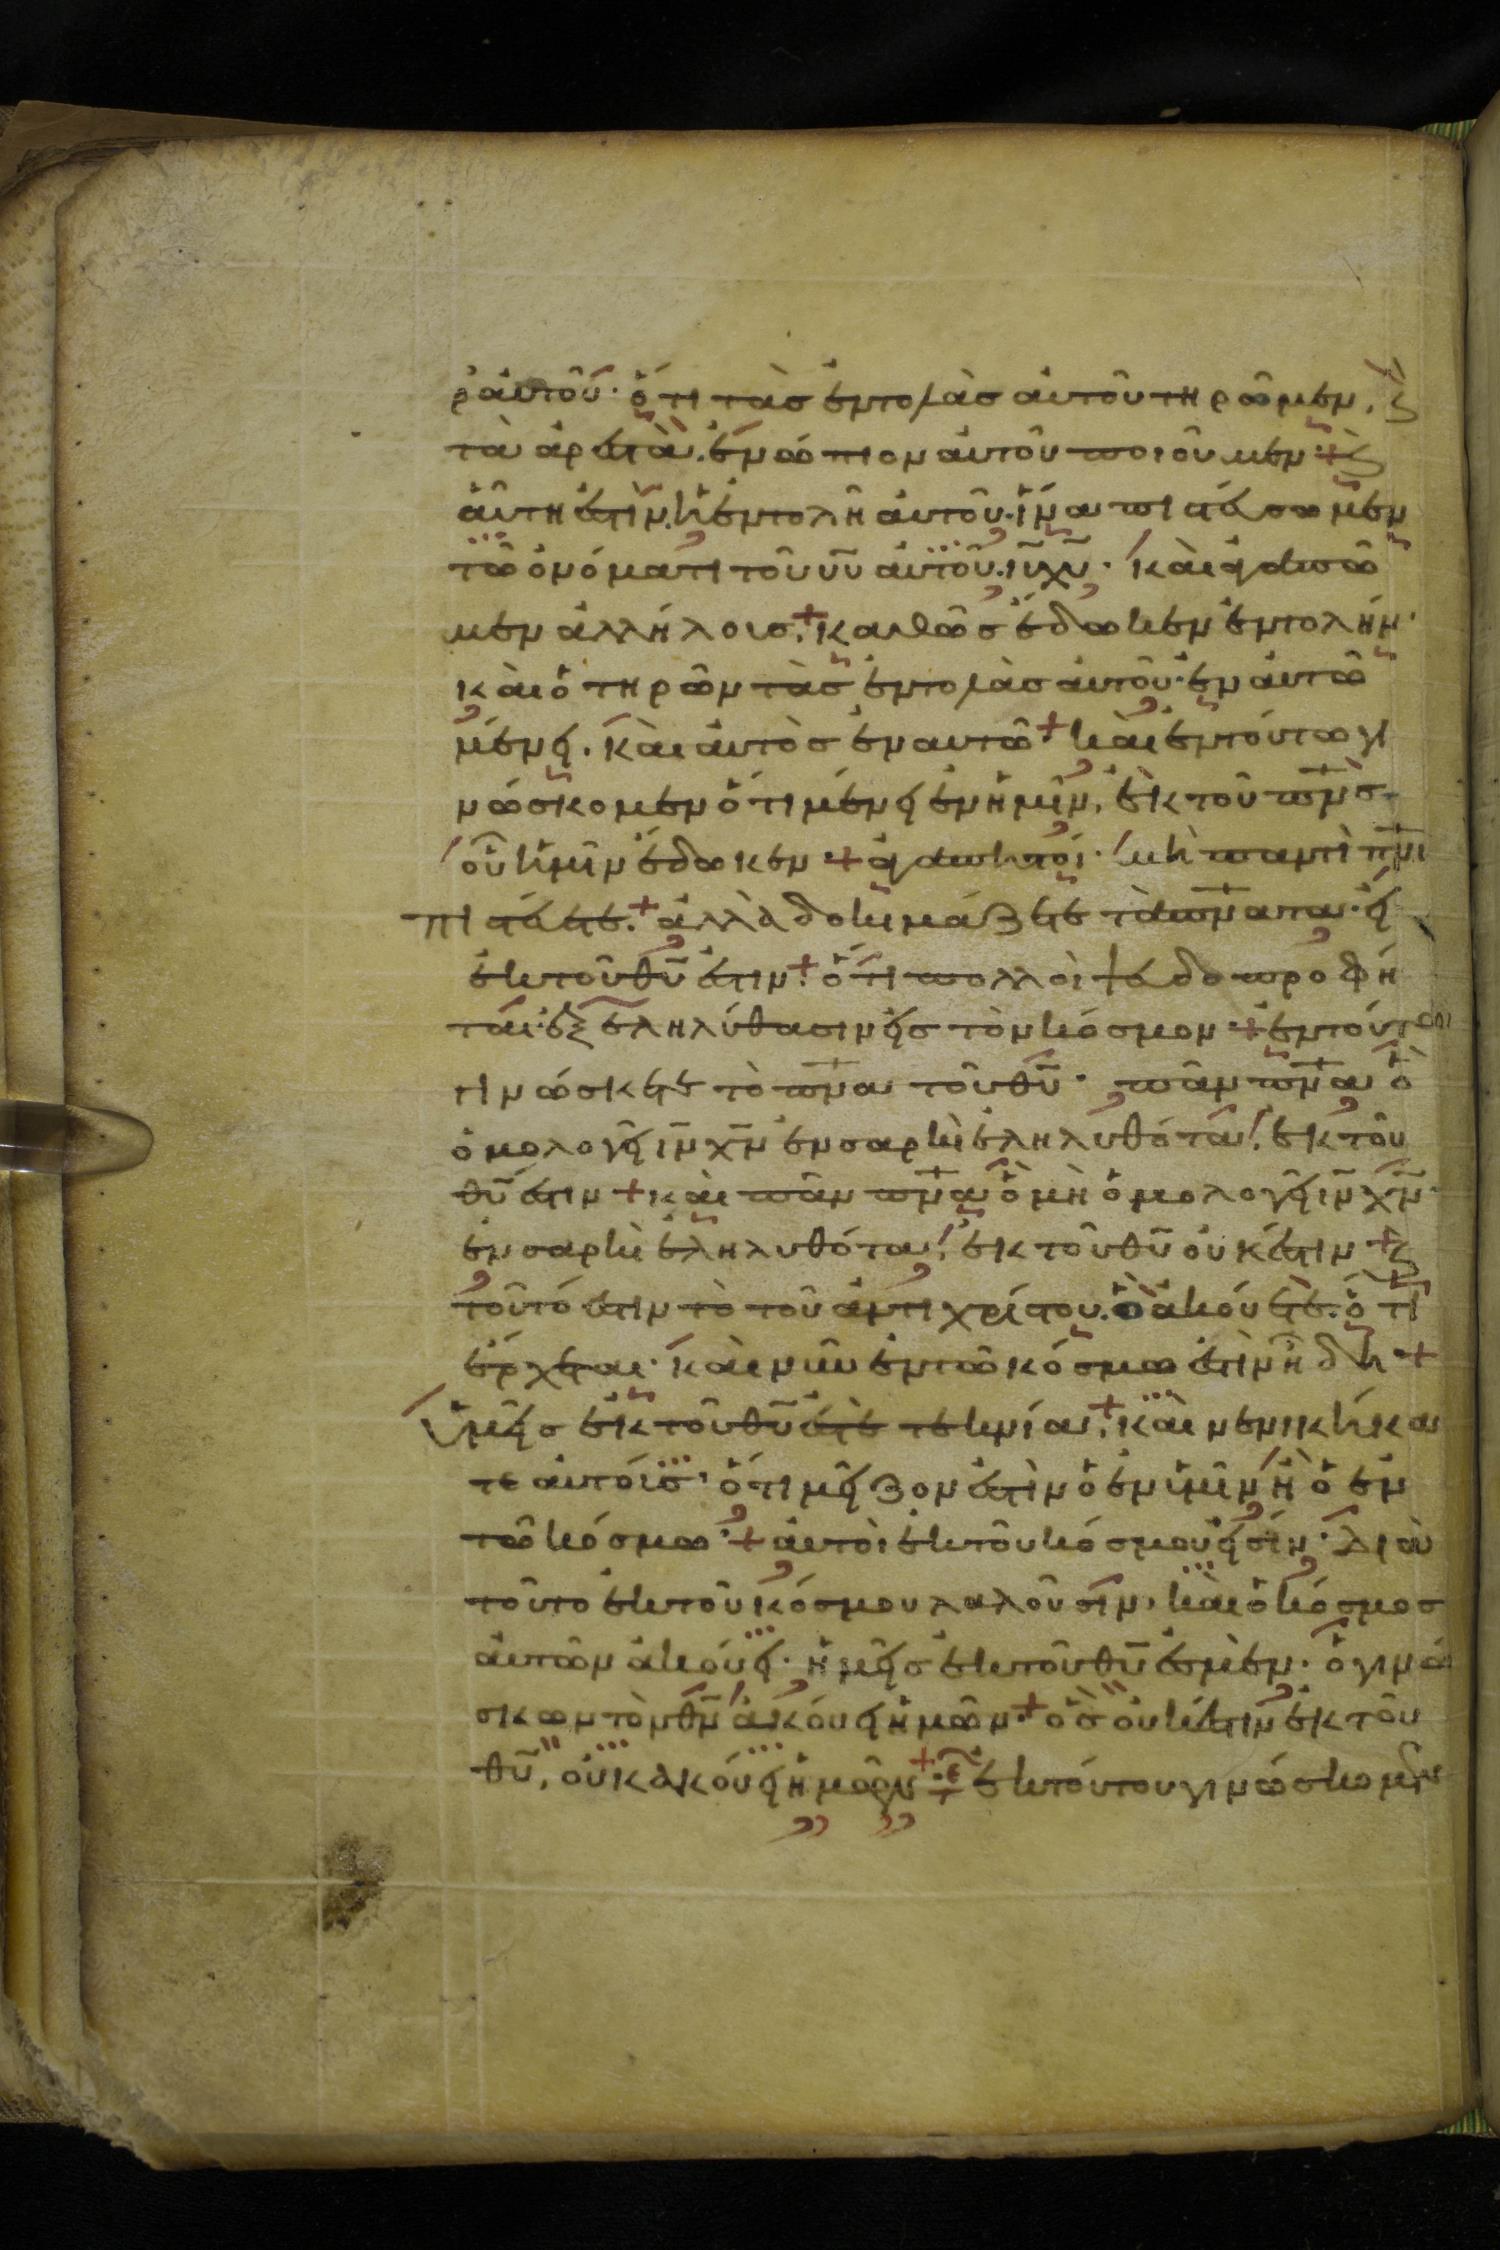 ρ αὐτοῦ· ὅτι τὰς ἐντολὰς αὐτοῦ τηρῶμεν, ϗ
τὰ ἀρεστὰ ἐνώπιον αὐτοῦ ποιοῦμεν + ϗ
αὕτη ἐστὶν ἡ ἐντολὴ αὐτοῦ. ἵνα πιστεύσωμεν
τῶ ὀνόματι τοῦ υῦ αὐτοῦ. ιῦ χῦ· καὶ ἀγαπῶ
μεν ἀλλήλοις + καθὼς ἔδωκεν ἐντολήν·
καὶ ὁ τηρῶν τὰς ἐντολὰς αὐτοῦ· ἐν αὐτῶ
μένει. καὶ αὐτὸς ἐν αυτῶ + καὶ ἐν τούτω γι
νώσκομεν ὅτι μένει ἐν ἡμῖν, ἐκ τοῦ πνς
οὗ ἡμῖν ἔδωκεν + ἀγαπητοί· μὴ παντὶ πνι
πιστεύετε. + ἀλλὰ δοκιμάζετε τὰ πνατα· εἰ
ἐκ τοῦ θῦ ἐστιν + ὅτι πολλοὶ ψευδοπροφῆ
ται· ἐξεληλύθασιν εἰς τὸν κόσμον + ἐν τούτω
γινώσκεται τὸ πνα τοῦ θῦ· πᾶν πνα ὃ
ὁμολογεῖ ιν χν ἐν σαρκὶ ἐληλυθότα, ἐκ τοῦ
θῦ ἐστιν + καὶ πᾶν πνα ὃ μὴ ὁμολογεῖ ιν χν·
ἐν σαρκὶ ἐληλυθότα, ἐκ τοῦ θῦ οὐκ ἔστιν + ϗ
τοῦτό ἐστιν τὸ τοῦ ἀντιχρίστου. ὃ ἀκούετε. ὅτι
ἔρχεται· καὶ νῦν ἐν τῶ κόσμω ἐστὶν ἤδη +
ὑμεῖς ἐκ τοῦ θῦ ἐστὲ τεκνία, + καὶ νενικήκα
τε αὐτοίς· ὅτι μεῖζον ἐστὶν ὁ ἐν ὑμῖν ἢ ὁ ἐν
τῶ κόσμω· + αὐτοὶ ἐκ τοῦ κόσμου εἰσίν· διὰ
τοῦτο ἐκ τοῦ κόσμου λαλοῦσιν, καὶ ὁ κόσμος
αὐτῶν ἀκούει· ἡμεῖς ἐκ τοῦ θῦ ἐσμὲν· ὁ γινώ
σκων τὸν θν ἀκούει ἡμῶν· + ὃς οὐκ ἔστιν ἐκ τοῦ
θῦ, οὐκ ἀκούει ἡμῶν + ἐκ τούτου γινώσκομεν